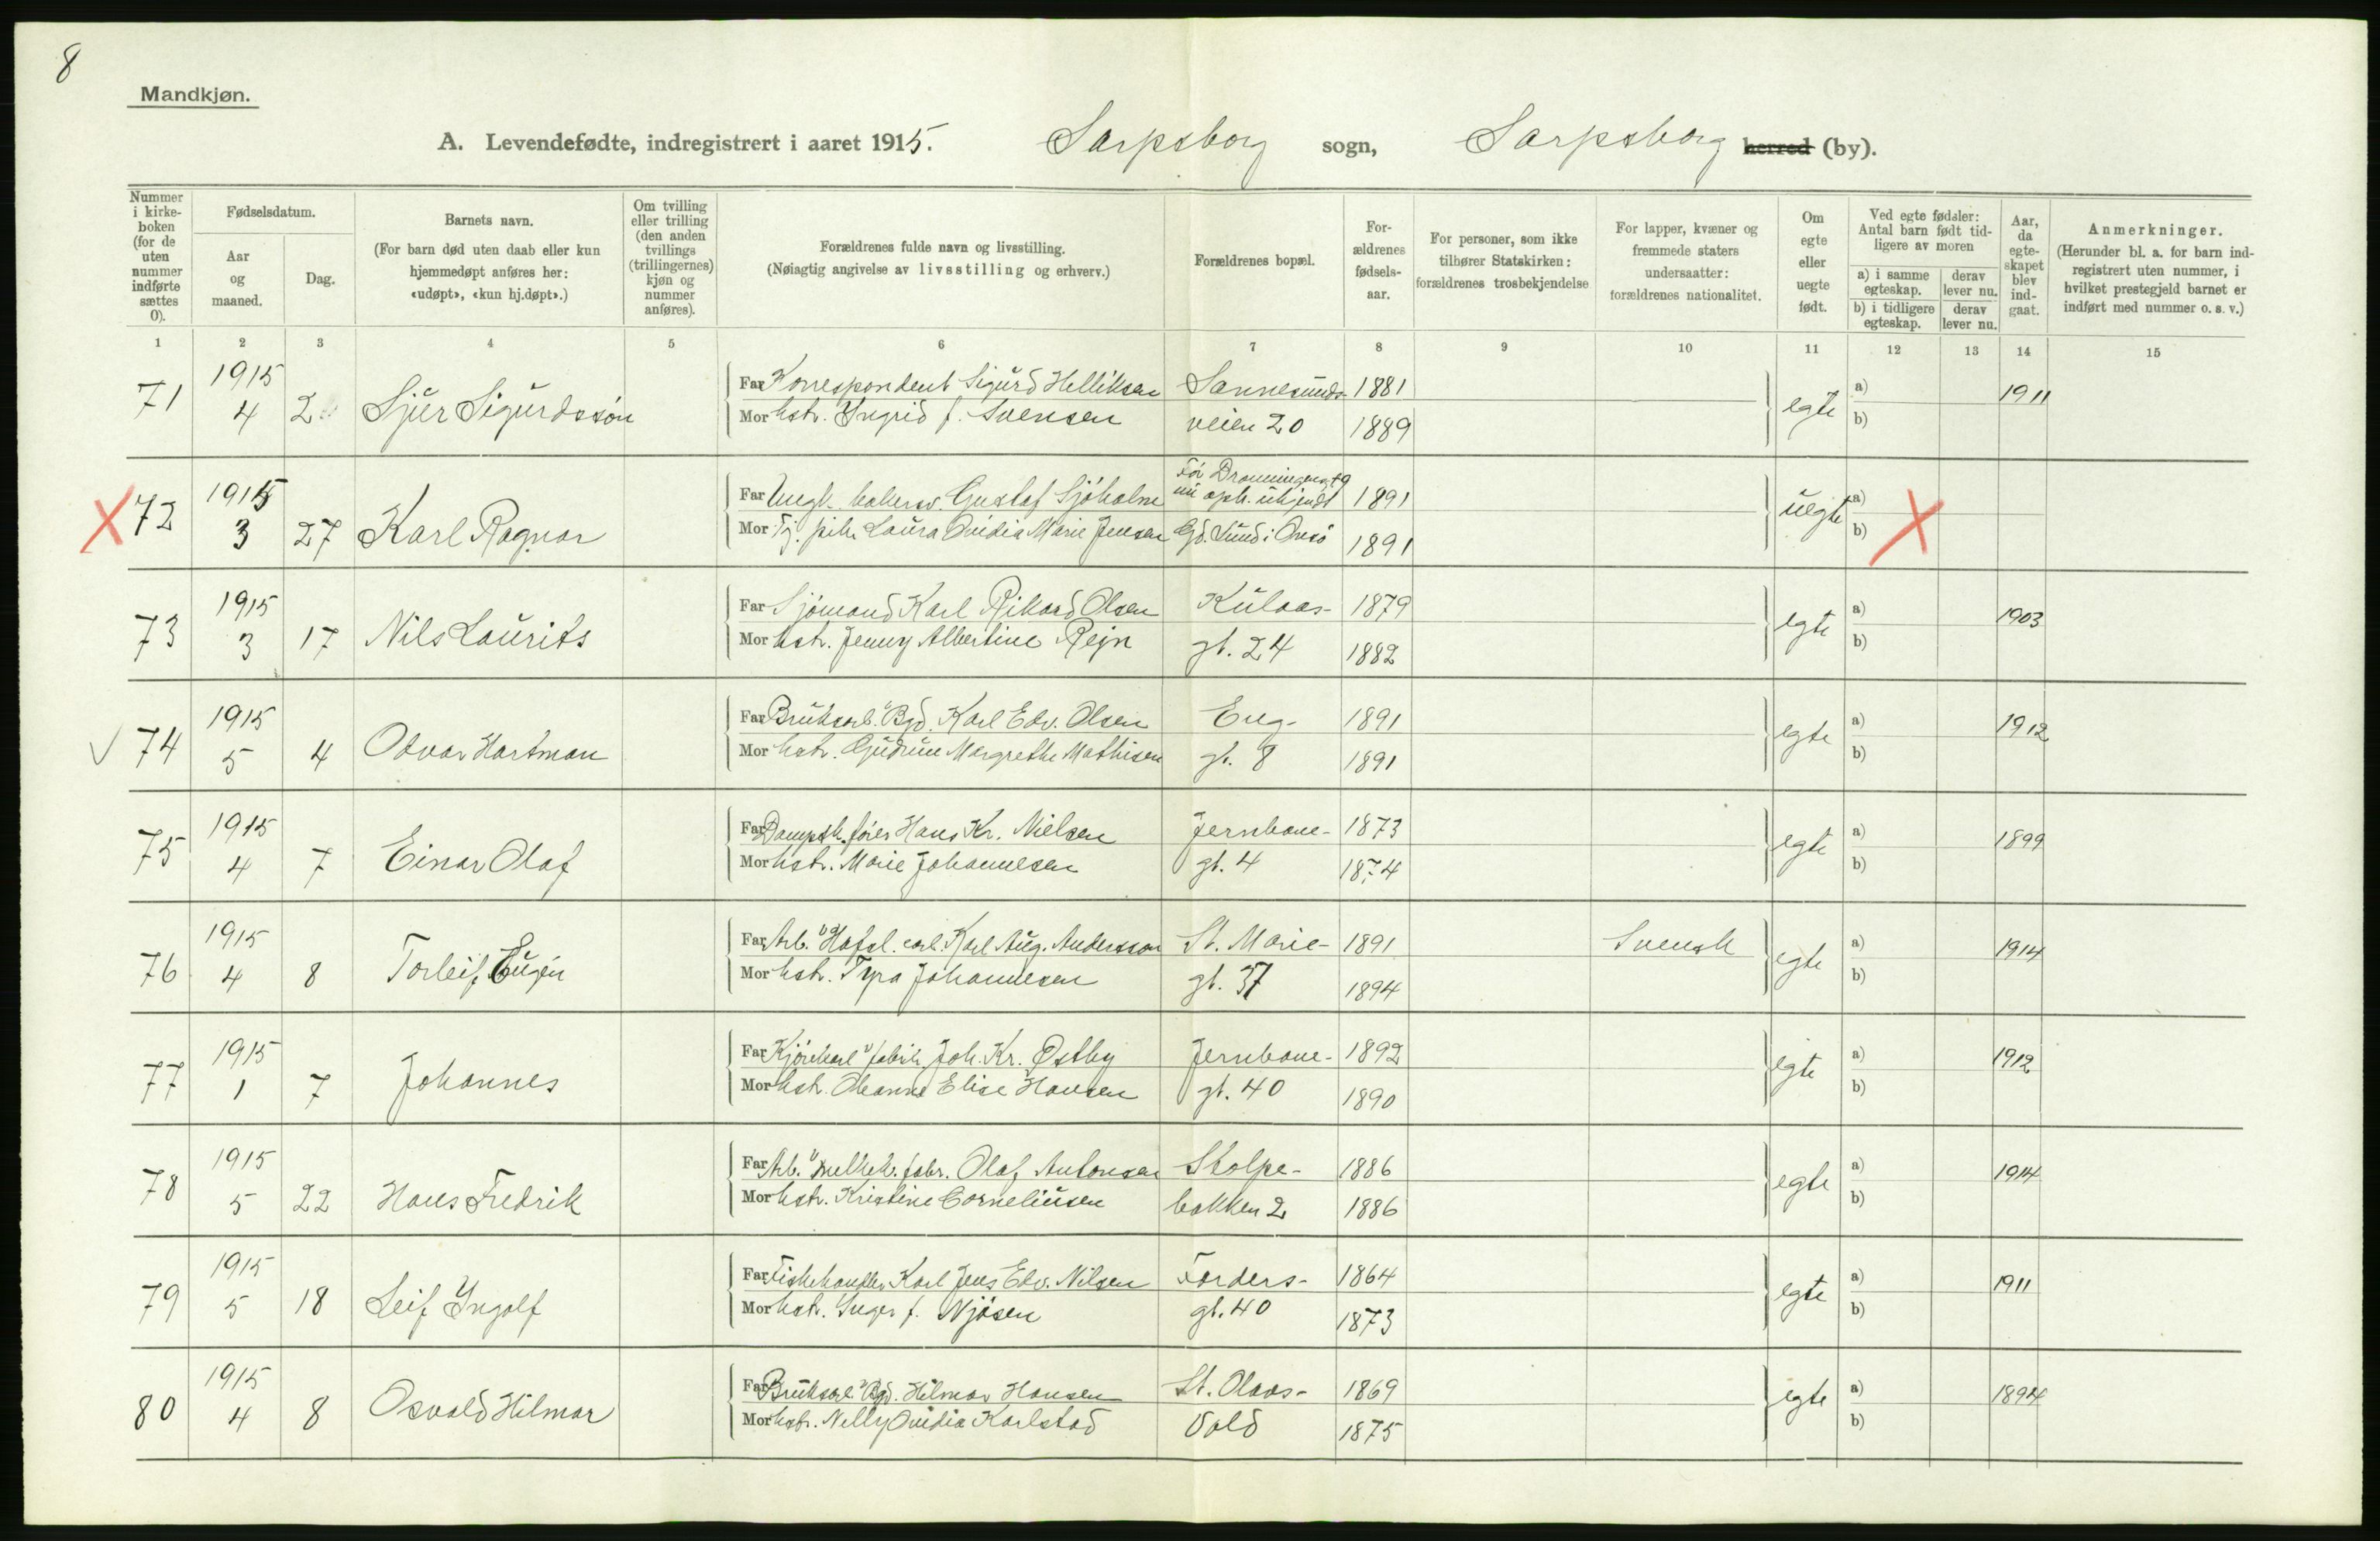 8
Mandkjøn.
A. Levendefødte, indregistrert i aaret 1915. Sarpsborg sogn, Sarpsborg herred (by).
Nummer i kirkeboken (for de uten nummer indførte sættes 0).
Fødselsdatum.
Aar og maaned.
Dag.
Barnets navn.
(For barn død uten daab eller kun hjemmedøpt anføres her: «udøpt», «kun hj.døpt».)
Om tvilling eller trilling (den anden tvillings (trillingernes) kjøn og nummer anføres).
Forældrenes fulde navn og livsstilling.
(Nøiagtig angivelse av livsstilling og erhverv.)
Forældrenes bopæl.
For-ældrenes fødsels-aar.
For personer, som ikke tilhører Statskirken: forældrenes trosbekjendelse
For lapper, kvæner og fremmede staters undersaatter: forældrenes nationalitet.
Om egte eller uegte født.
Ved egte fødsler: Antal barn født tid-ligere av moren
a) i samme egteskap.
derav lever nu.
b) i tidligere egteskap.
derav lever nu.
Aar, da egte-skapet blev ind-gaat.
Anmerkninger.
(Herunder bl. a. for barn ind-registrert uten nummer, i hvilket prestegjeld barnet er indført med nummer o. s. v.)
1 2 3 4 5 6 7 8 9 10 11 12 13 14 15
71 1915 4 2 Sjur Sigurdssøn
Far Korrespondent Sigurd Helliksen Sannesunds- 1881 egte a) 1911
Mor hstr. Yngrid f. Svensen veien 20 1889 b)
X 72 1915 3 27 Karl Ragnar
Far Ungk. Gustaf Sjöholm Før Dronningensgt 9 nu oph. ukjendt 1891 uegte a) X
Mor Tj. pike Laura Ovidia Marie Jensen Gd. Lund i Onsø 1891 b)
73 1915 3 17 Nils Laurits
Far Sjömand Karl Rikard Olsen Kulaas- 1879 egte a) 1903
Mor hstr. Jenny Albertine Rejn gt. 24 1882 b)
74 1915 5 4 Odvar Hartman
Far Bruksarb. Bgd. Karl Edv. Olsen Eng- 1891 egte a) 1912
Mor hstr. Gudrun Margrethe Mathisen gt. 8 1891 b)
75 1915 4 7 Einar Olaf
Far Dampsk.fører Hans Kr. Nielsen Jernbane- 1873 egte a) 1899
Mor hstr. Marie Johannesen gt. 4 1874 b)
76 1915 4 8 Torleif Eugén
Far Arb. Hafsl. Karl Aug. Andersson St. Marie- 1891 Svensk egte a) 1914
Mor hstr. Tyra Johannesen gt. 37 1894 b)
77 1915 1 7 Johannes
Far Kjørekarl fabrik Joh. Kr. Østby Jernbane- 1892 egte a) 1912
Mor hstr. Elise Hansen gt. 40 1890 b)
78 1915 5 22 Hans Fredrik
Far Arb. melkek. fabr. Olaf Antonsen Stolpe- 1886 egte a) 1914
Mor hstr. Kristine Corneliusen bakken 2 1886 b)
79 1915 5 18 Leif Yngolf
Far Fiskehandler Karl Jens Edv. Nilsen Forders- 1864 egte a) 1911
Mor hstr. Inger f. Njøsen gt. 40 1873 b)
80 1915 4 8 Osvald Hilmar
Far Bruksarb. Bgd. Hilmar Hansen St. Olavs- 1869 egte a) 1894
Mor hstr. Nelly Ovidia Karlstad Vold 1875 b)